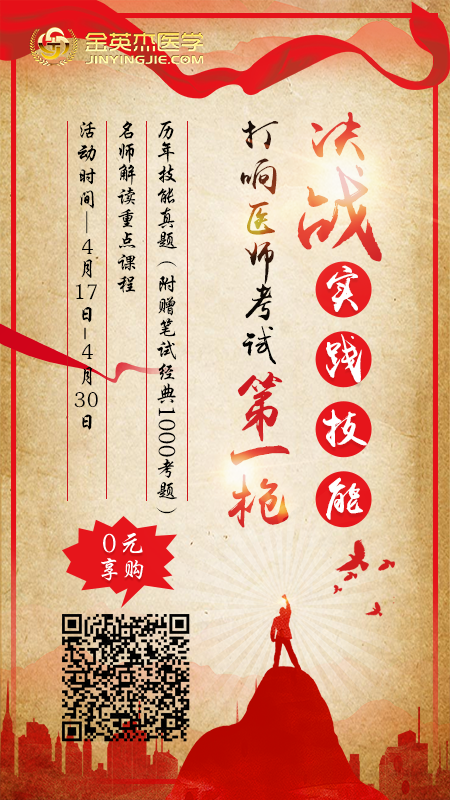 金英杰医学
JINYINGJIE.COM
决战实践技能
打响医师考试第一枪
历年技能真题（附赠笔试经典1000考题）
名师解读重点课程
活动时间—4月17日-4月30日
0元
享购